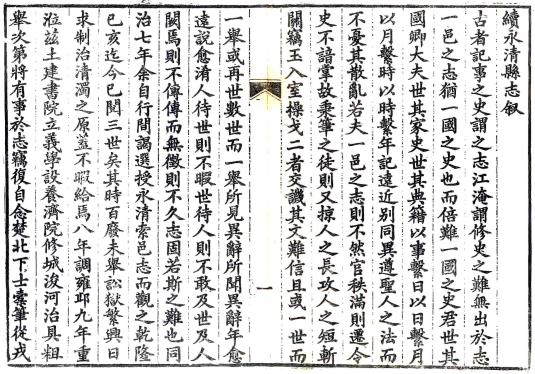 續永清縣志叙
古者記事之史謂之志江淹謂修史之難無出於志
一邑之志猶一國之史也而倍難一國之史君世其
國卿大夫世其家史世其典籍以事繫日以日繫月
以月繫時以時繫年記遠近别同異遵聖人之法而
不憂其散亂若夫一邑之志則不然官秩滿則遷令
史不諳掌故秉筆之徒則又掠人之長攻人之短斬
關竊王入室操戈二者交譏其文難信且或一世而
一
一舉或再世數世而一舉所見異辭所聞異辭年愈
遠說愈淆人待世則不暇世待人則不敢及世及人
闕焉則不傳傳而無徵則不久志固若斯之難也同
治七年余自行間謁選授永清索邑志而觀之乾隆
己亥迄今已閲三世矣其時百廢未舉訟獄繁興日
求制治清濁之原蓋不暇給焉八年調雍邱九年重
涖兹土建書院立義學設養濟院修城浚河治具粗
舉次第將有事於志竊復自念楚北下士索筆從戎